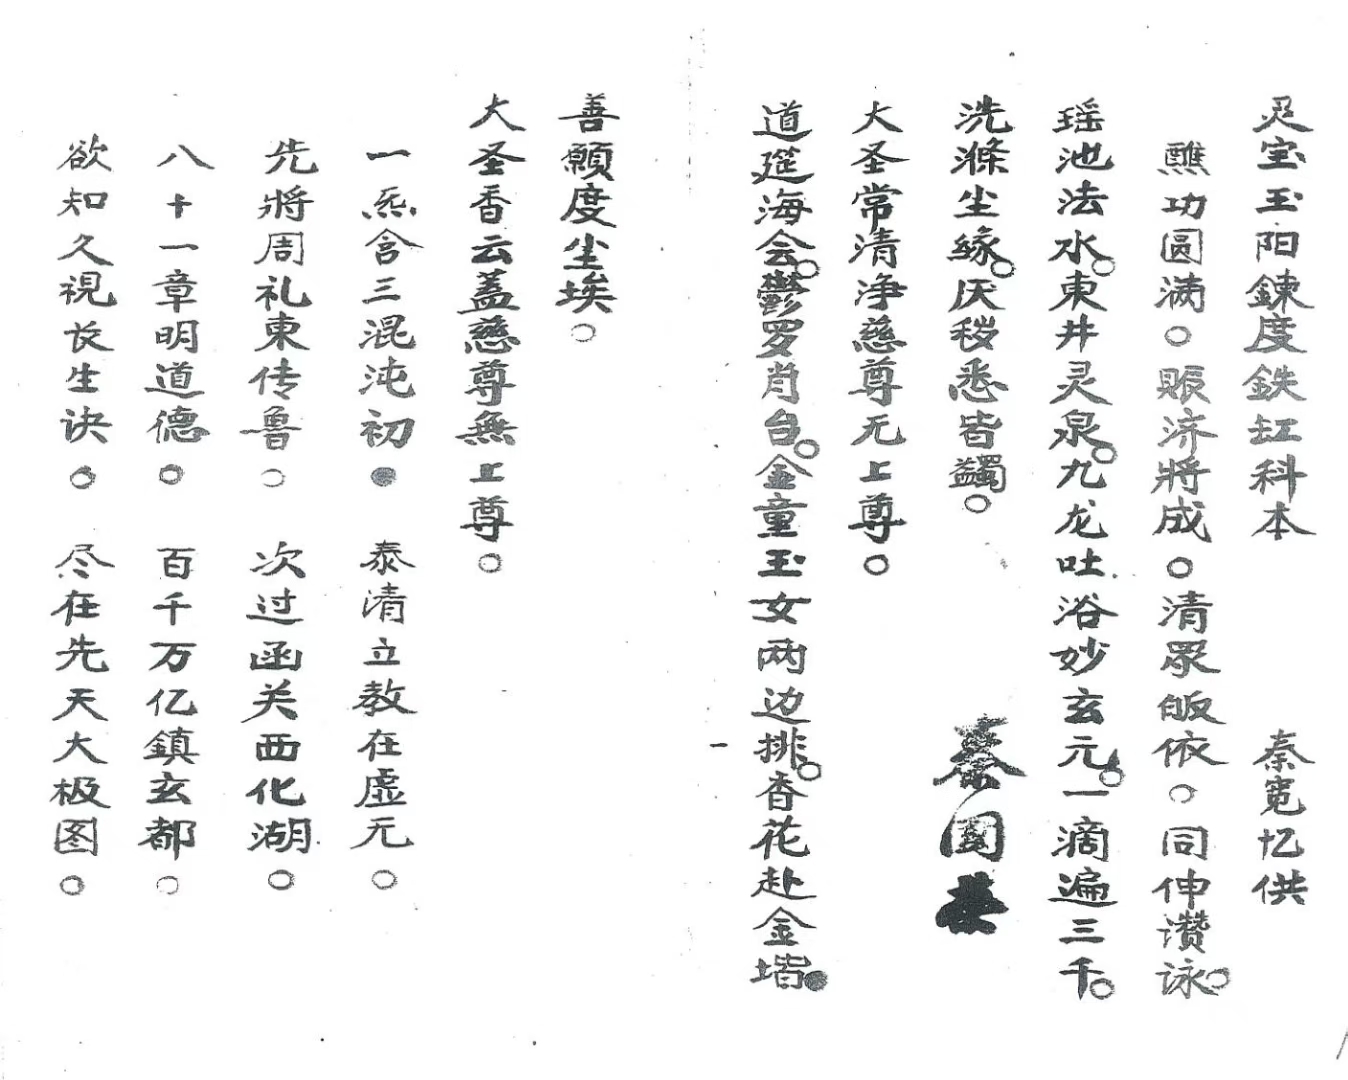 灵宝玉阳鍊度鉄缸科本 秦宽忆供
醮功圆满○赈济將成○清眾皈依○同伸讚詠○
瑶池法水○東井灵泉○九龙吐浴妙玄元○一滴遍三千○
洗滌尘緣○厌秽悉皆蠲○
大圣常清净慈尊无上尊○
道筵海会○鬱罗肖台○金童玉女两边排○香花赴金堦●
善願度尘埃○
大圣香云盖慈尊無上尊○
一炁含三混沌初● 泰清立教在虚无○
先將周礼東传魯○ 次过函关西化湖○
八十一章明道德○ 百千万亿鎮玄都○
欲知久視长生诀○ 尽在先天大极图○